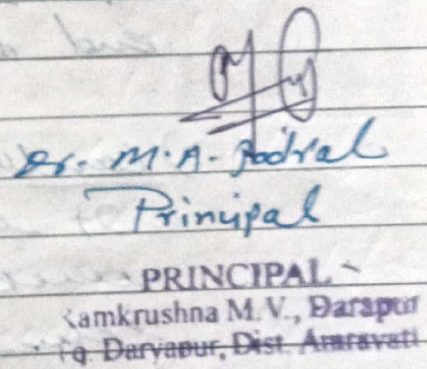 Dr. M. A. Podral
Principal
PRINCIPAL
Ramkrushna M.V., Darapur
Tq. Daryapur, Dist. Amravati